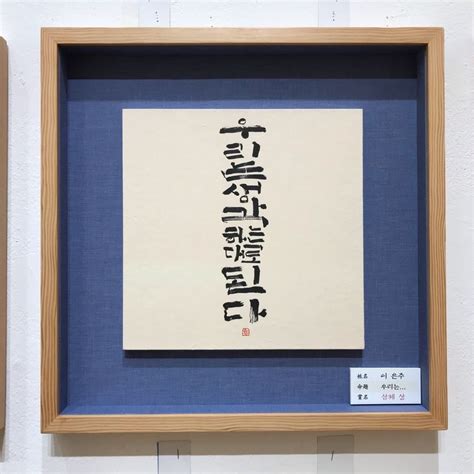 우리는생각하는대로된다
姓名 이 은주
命題 우리는...
賞名 삼체 상